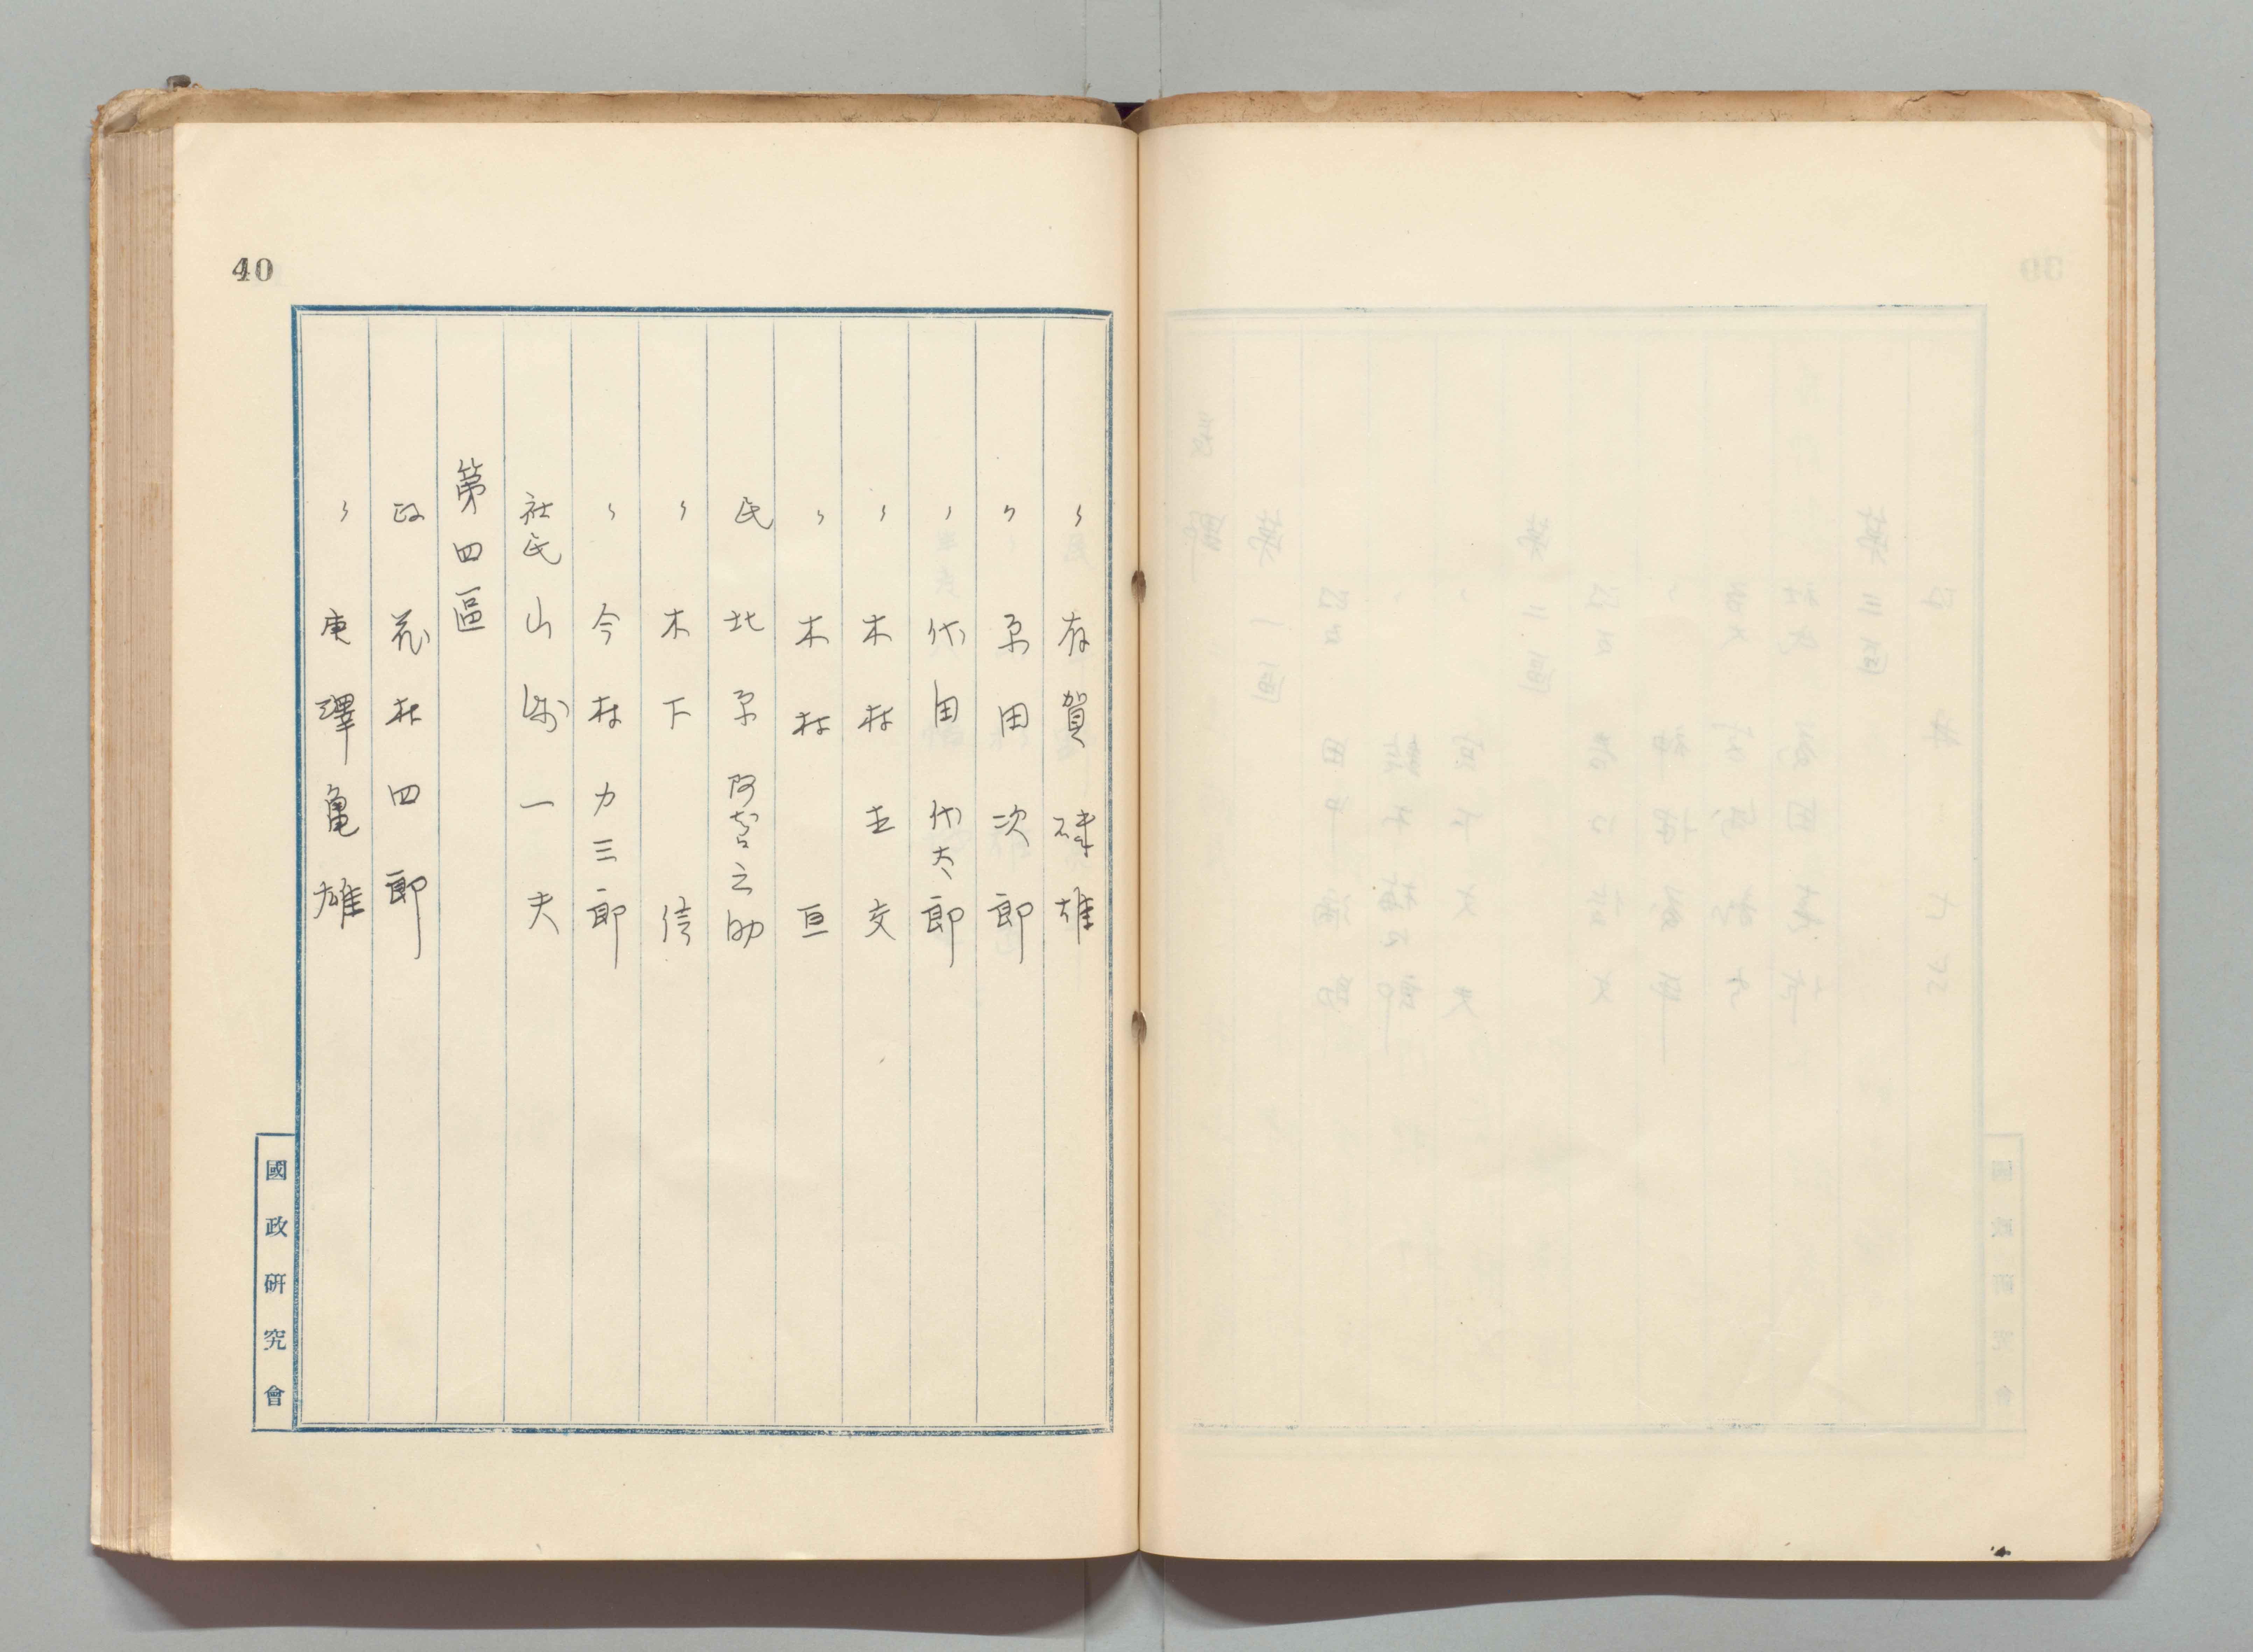 〃 有賀 雄
〃 原田次郎
〃 代田代太郎
〃 木村 文
〃 木村亘
民 北原阿智之助
〃 木下信
〃 今村力三郎
社民 山崎一夫
第四區
政 花村四郎
〃 唐澤亀雄
40
國政研究會